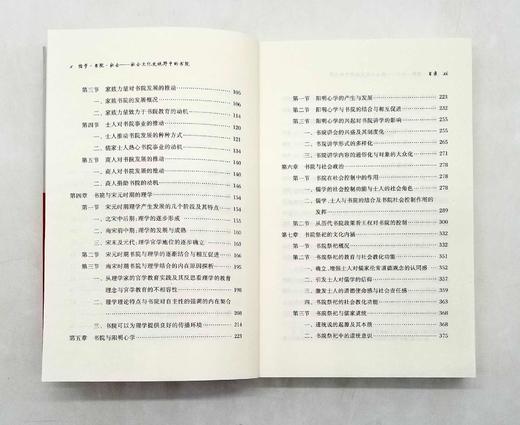 x 儒学·书院·社会——社会文化史视野中的书院
第三节 家族力量对书院发展的推动 105
一、家族书院的发展概况
二、家族力量致力于书院教育的动机
第四节 士人对书院事业的推动
一、士人推动书院发展的种种方式
二、儒家士人热心书院事业的动机
第五节 商人对书院发展的推动
一、商人对书院发展的推动
二、商人捐助书院的动机
第四章 书院与宋元时期的理学 154
第一节 宋元时期理学产生发展的几个阶段及其特点 154
一、北宋中后期：理学的逐步形成
二、南宋前中期：理学的发展与成熟
三、宋末及元代：理学官学地位的逐步确立
第二节 宋元时期书院与理学的逐渐结合与相互促进
第三节 南宋时期书院与理学结合的内在原因探析
一、从理学家的官学教育实践及其反思看理学的教育
理念与官学教育的不相容性
二、理学理论特点与书院对自主性的强调的内在契合
三、书院可以为理学提供良好的传播环境 214
第五章 书院与阳明心学 223
目录 xi
第一节 阳明心学的产生与发展 223
第二节 阳明心学与书院的结合与相互促进
第三节 阳明心学的兴起对书院讲学的影响
一、书院讲会的兴盛及其制度化
二、书院讲学形式的多样化
三、书院讲学内容的通俗化与对象的大众化
第六章 书院与社会政治
第一节 书院在社会控制中的作用
一、儒学的社会控制功能与士人的社会角色
二、儒学、士人与书院的结合及书院社会控制作用的
发挥
第二节 从历代书院政策看王权对书院的控制
第七章 书院祭祀的文化内涵
第一节 书院祭祀概况
第二节 书院祭祀的教育与社会教化功能
一、确立、增强士人对儒家伦常道德观念的认同感
二、引发士人对儒学的信仰
三、激发士人的道德使命感与社会责任感
四、书院祭祀的社会教化功能
第三节 书院祭祀与儒家道统 368
一、道统说的起源及其本质 368
二、书院祭祀中的道统意识 375